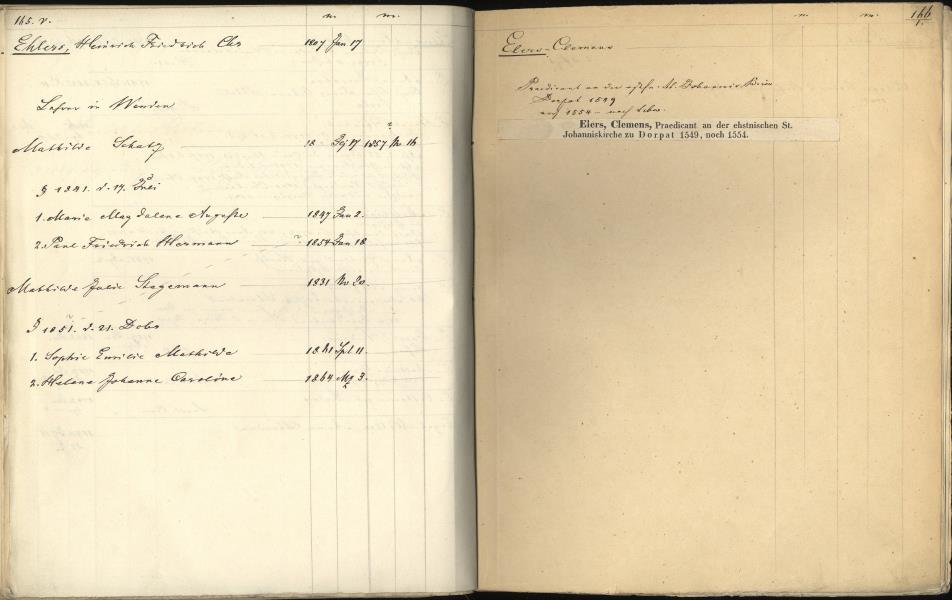 165. v.
n. m.
Ehlers, Heinrich Friedrich Chr 1807 Jan 17
Lehrer in Wenden
Mathilde Schatz 18 17 1857 No 16
1841. d. 17.
1. Marie Magdalene Auguste 1847 Jan 2.
2. Paul Friedrich Hermann 1854 Jan 18
Mathilde Julie Stegemann 1831 No 20.
d. 21. Dcbr
1. Sophie Emilie Mathilde Spt 11.
2. Helene Johanne Caroline 1864 Mz 3.
n. m. 166
Elers, Clemens
Praedicant an der St. Johannis Kirche
Dorpat 1549
1554
Elers, Clemens, Praedicant an der ehstnischen St.
Johanniskirche zu Dorpat 1549, noch 1554.